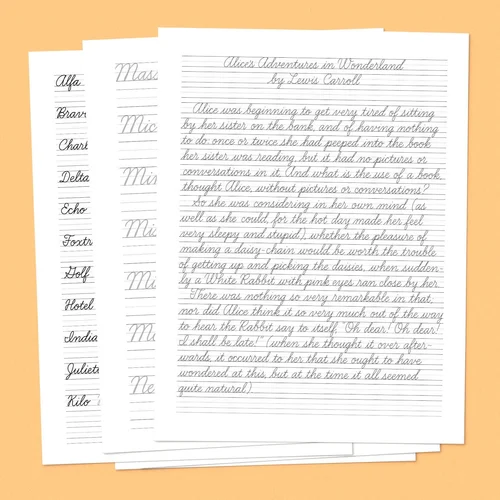 Alfa
Bravo
Charl
Delta
Echo
Foxtr
Golf
Hotel
India
Juliett
Kilo
Mass
Mic
Min
Mis
Mi
Mo
Ne
Alice's Adventures in Wonderland
by Lewis Carroll
Alice was beginning to get very tired of sitting
by her sister on the bank, and of having nothing
to do: once or twice she had peeped into the book
her sister was reading, but it had no pictures or
conversations in it. And what is the use of a book,
thought Alice, without pictures or conversations?
So she was considering in her own mind (as
well as she could, for the hot day made her feel
very sleepy and stupid), whether the pleasure of
making a daisy-chain would be worth the trouble
of getting up and picking the daisies, when sudden-
ly a White Rabbit with pink eyes ran close by her.
There was nothing so very remarkable in that,
nor did Alice think it so very much out of the way
to hear the Rabbit say to itself, "Oh dear! Oh dear!
I shall be late!" (when she thought it over after-
wards, it occurred to her that she ought to have
wondered at this, but at the time it all seemed
quite natural).